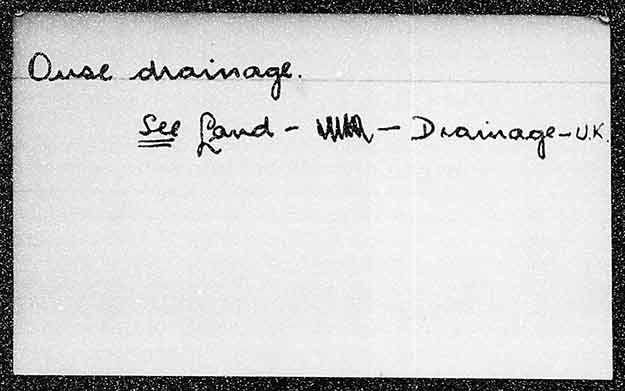 Ouse drainage.
See Land - - Drainage - U.K.